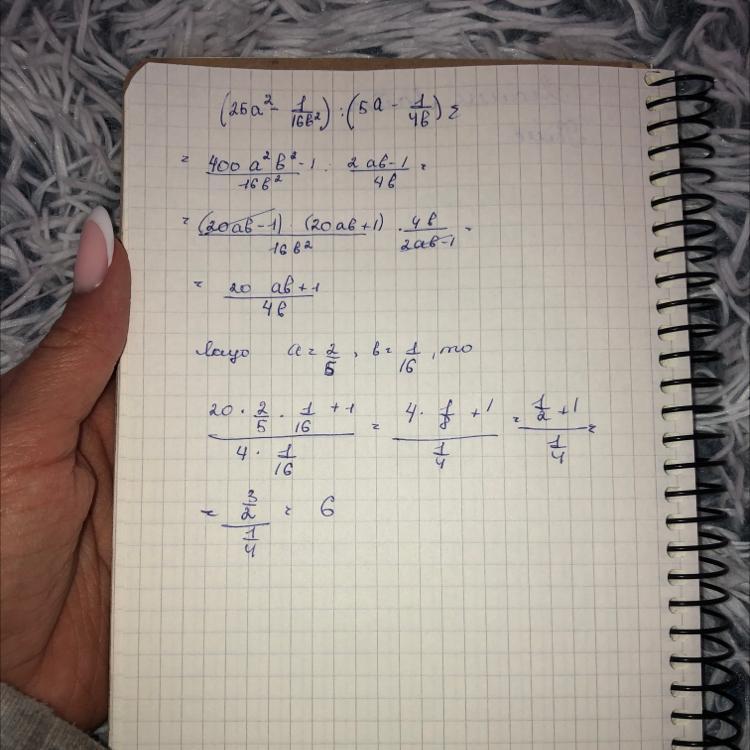 (25a² - 1/16b²) : (5a - 1/4b) =
= 400a²b² - 1 / 16b² : 2ab - 1 / 4b =
= (20ab - 1) (20ab + 1) / 16b² · 4b / 2ab - 1 =
= 20 ab + 1 / 4b
a = 2/5, b = 1/16, то
20 · 2/5 · 1/16 + 1 / 4 · 1/16 = 4 · 1/8 + 1 / 1/4 = 1/2 + 1 / 1/4 =
= 3/2 / 1/4 = 6